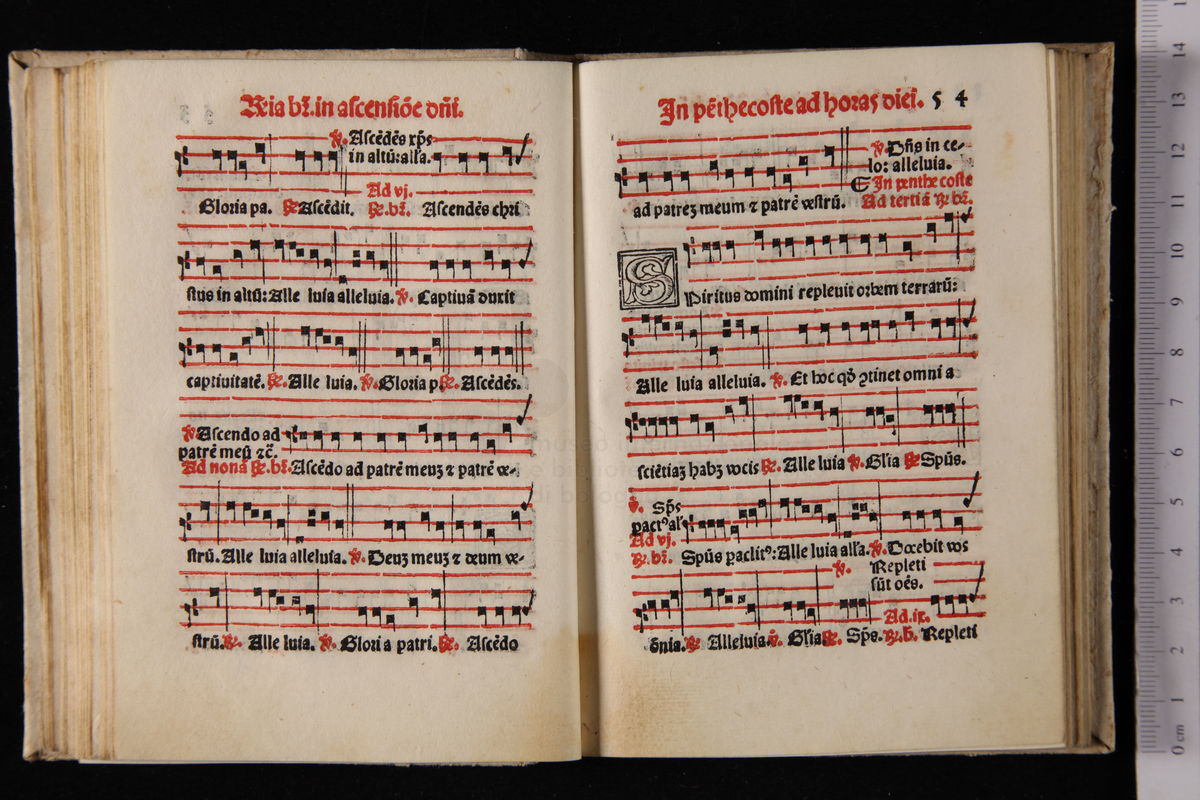 Rñia bꝛ̃. in ascensiōe dñi.
℣. Ascēdēs xp̄s
in altū: all'a.
Ad vj.
Gloria pa. ℟ Ascēdit. ℟. bꝛ̃. Ascendēs chri
stus in altū: Alle luia alleluia. ℣. Captiuā duxit
captiuitatē. ℟. Alle luia. ℣. Gloria p ℟. Ascēdēs.
℣ Ascendo ad
patrē meū ⁊c̄.
Ad nonā ℟. bꝛ̃. Ascēdo ad patrē meuꝫ ⁊ patrē ve-
strū. Alle luia alleluia. ℣. Deuꝫ meuꝫ ⁊ deum ve-
strū. ℟. Alle luia. ℣. Glori a patri. ℟. Ascēdo
In pēthecoste ad horas diei. 5 4
℣. Dñs in ce-
lo: alleluia.
In penthe coste
ad patreꝫ meum ⁊ patrē vestrū. Ad tertiā ℟ bꝛ̃.
Spiritus domini repleuit orbem terrarū:
Alle luia alleluia. ℣. Et hoc qđ ꝯtinet omni a
sciētiaꝫ habꝫ vocis ℟. Alle luia ℣. Gl'ia ℟ Spūs.
℣. Sp̄s
paclitꝰ al'
Ad vj.
℟. bꝛ̃. Spūs paclitꝰ: Alle luia all'a. ℣. Docebit vos
℣. Repleti
sūt oēs.
Ad. ix.
ōnia. ℟ Alleluia. ℣. Gl'ia ℟. Sp̄s. ℟. b. Repleti
14
12
11
10
9
8
7
6
5
4
3
2
1
0 cm